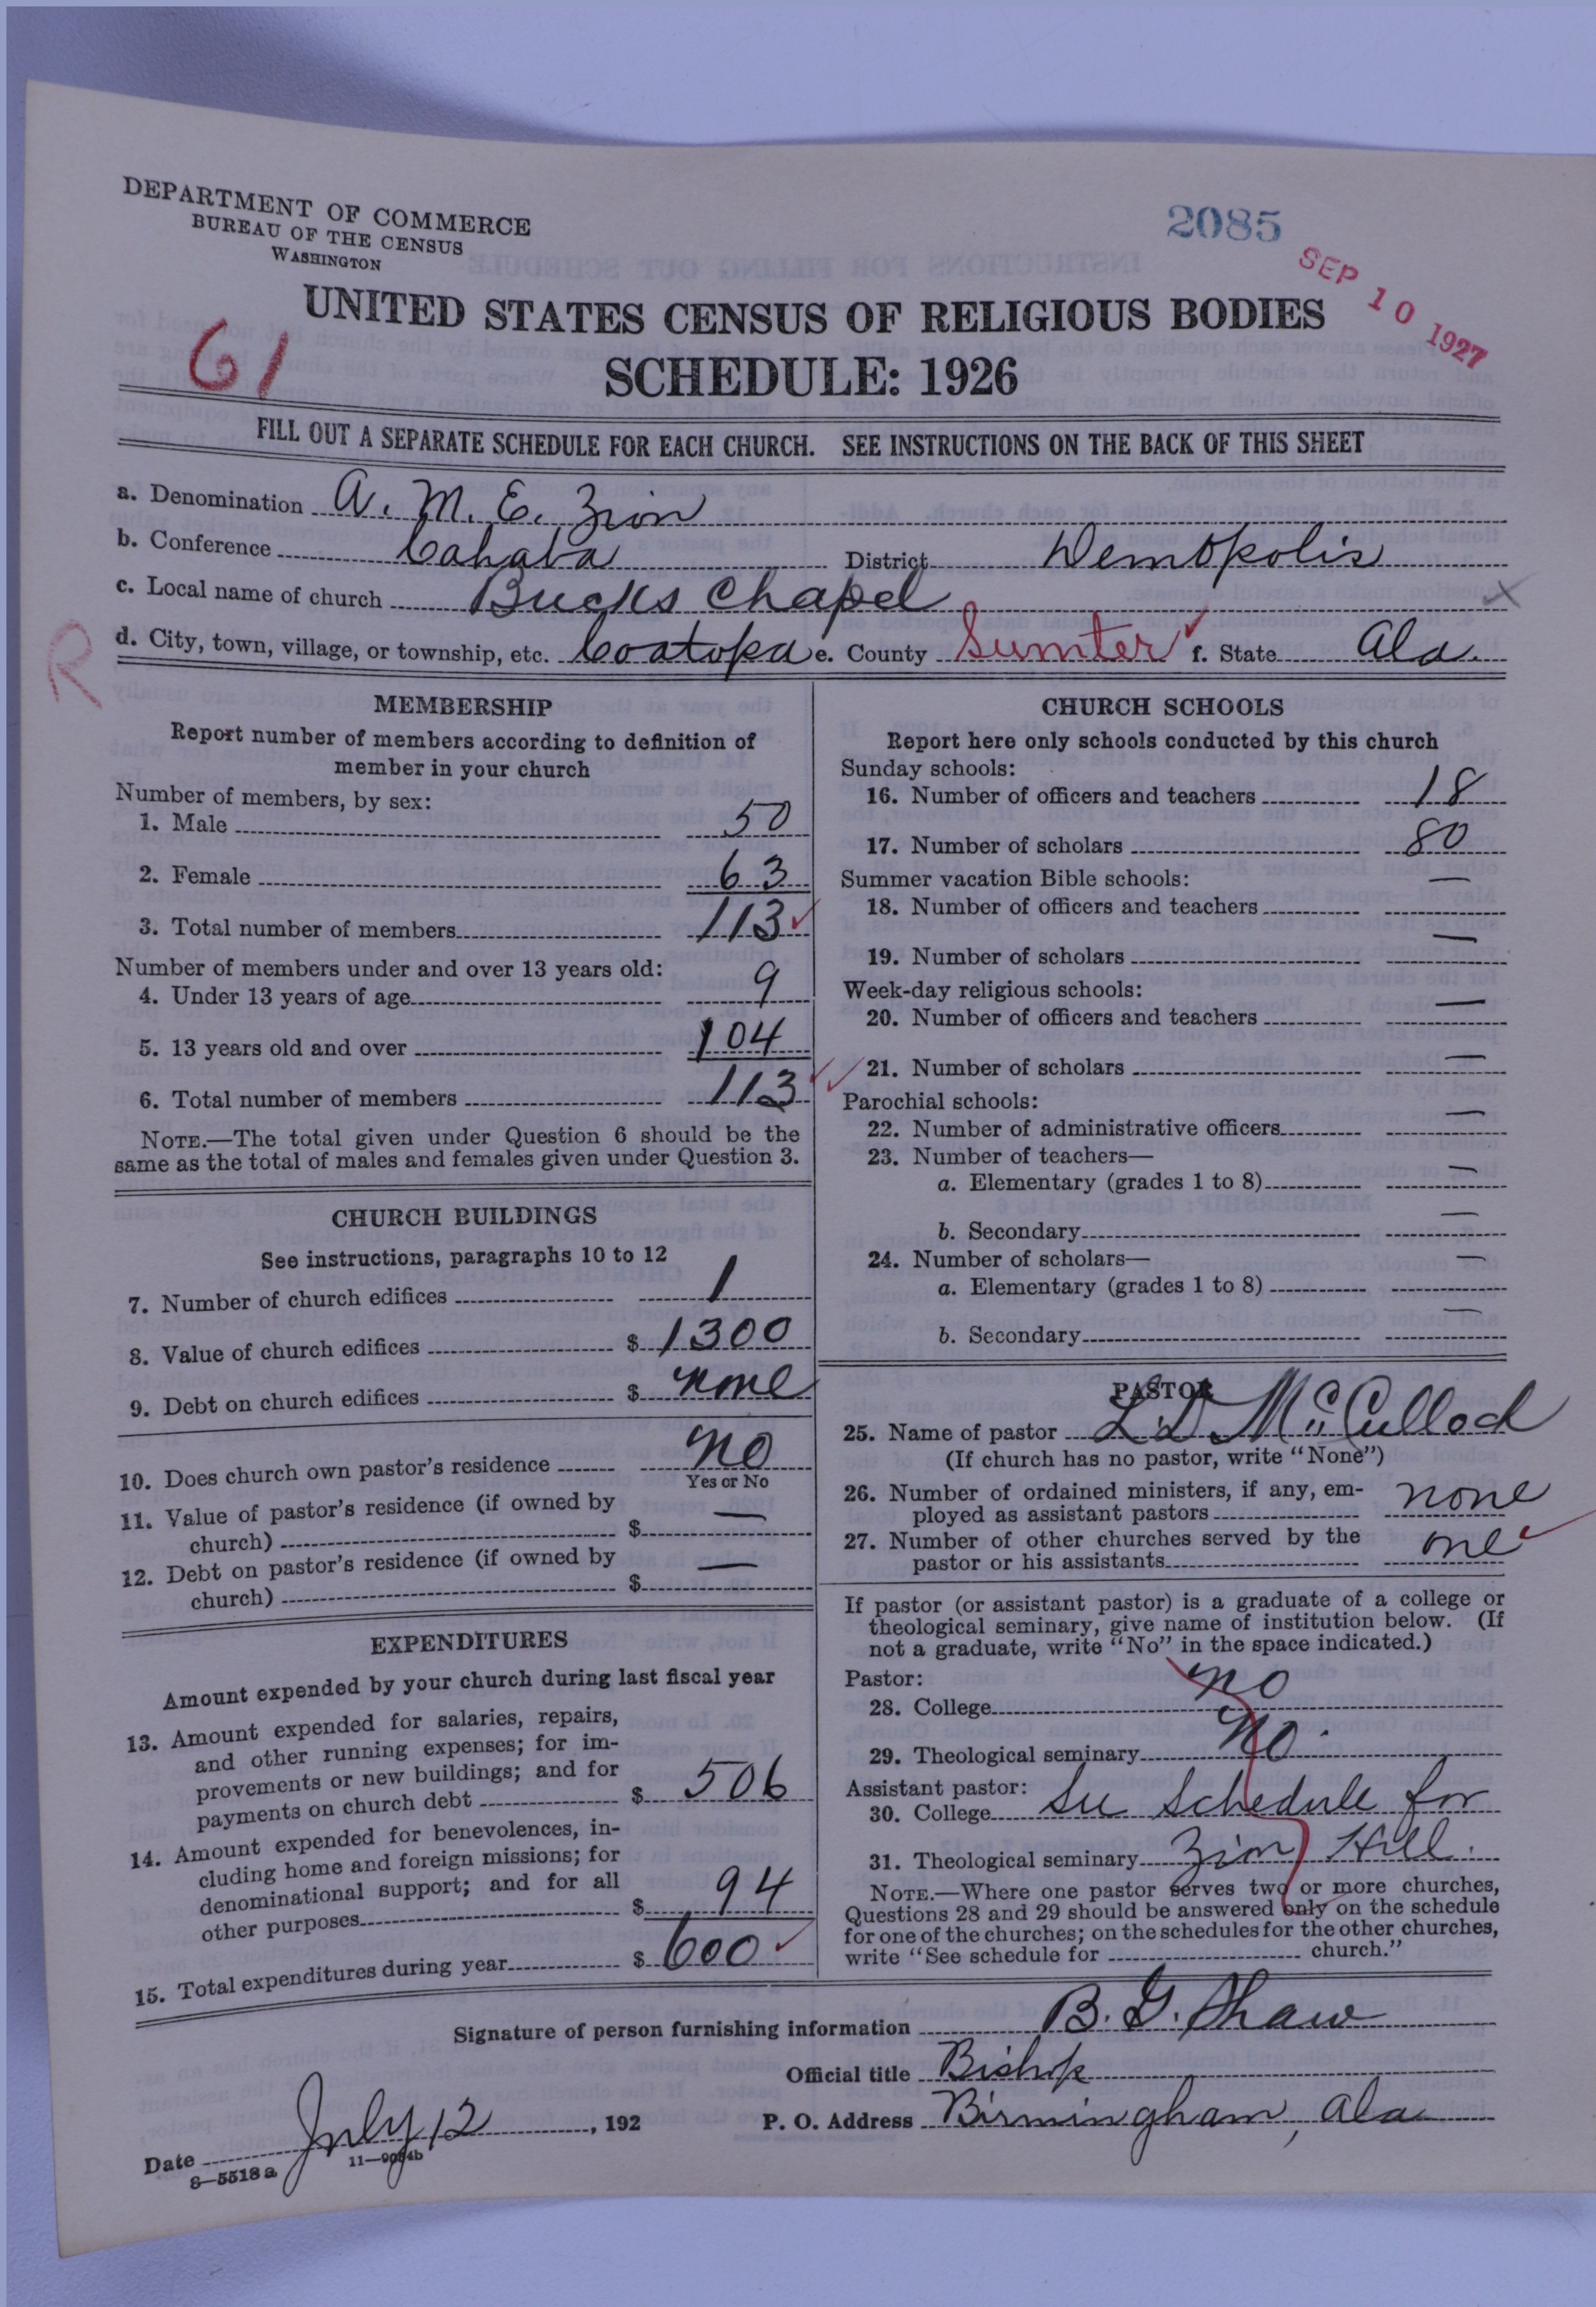 DEPARTMENT OF COMMERCE
BUREAU OF THE CENSUS
WASHINGTON
2085
SEP 10 1927
UNITED STATES CENSUS OF RELIGIOUS BODIES
61
SCHEDULE: 1926
FILL OUT A SEPARATE SCHEDULE FOR EACH CHURCH. SEE INSTRUCTIONS ON THE BACK OF THIS SHEET
a. Denomination A. M. E. Zion
b. Conference Cahaba District Demopolis
c. Local name of church Bucks Chapel
R
d. City, town, village, or township, etc. Coatopa e. County Sumter f. State Ala.
MEMBERSHIP
Report number of members according to definition of
member in your church
Number of members, by sex:
1. Male 50
2. Female 63
3. Total number of members 113
Number of members under and over 13 years old:
4. Under 13 years of age 9
5. 13 years old and over 104
6. Total number of members 113
NOTE.—The total given under Question 6 should be the
same as the total of males and females given under Question 3.
CHURCH BUILDINGS
See instructions, paragraphs 10 to 12
7. Number of church edifices 1
8. Value of church edifices $ 1300
9. Debt on church edifices $ none
10. Does church own pastor's residence no
Yes or No
11. Value of pastor's residence (if owned by
church) $ —
12. Debt on pastor's residence (if owned by
church) $ —
EXPENDITURES
Amount expended by your church during last fiscal year
13. Amount expended for salaries, repairs,
and other running expenses; for im-
provements or new buildings; and for
payments on church debt $ 506
14. Amount expended for benevolences, in-
cluding home and foreign missions; for
denominational support; and for all
other purposes $ 94
15. Total expenditures during year $ 600
CHURCH SCHOOLS
Report here only schools conducted by this church
Sunday schools:
16. Number of officers and teachers 18
17. Number of scholars 80
Summer vacation Bible schools:
18. Number of officers and teachers —
19. Number of scholars —
Week-day religious schools:
20. Number of officers and teachers —
21. Number of scholars —
Parochial schools:
22. Number of administrative officers —
23. Number of teachers—
a. Elementary (grades 1 to 8) —
b. Secondary —
24. Number of scholars—
a. Elementary (grades 1 to 8) —
b. Secondary —
PASTOR
25. Name of pastor L. D. McCulloch
(If church has no pastor, write "None")
26. Number of ordained ministers, if any, em-
ployed as assistant pastors none
27. Number of other churches served by the
pastor or his assistants one
If pastor (or assistant pastor) is a graduate of a college or
theological seminary, give name of institution below. (If
not a graduate, write "No" in the space indicated.)
Pastor:
28. College no
29. Theological seminary No.
Assistant pastor:
30. College See Schedule for
31. Theological seminary Zion Hill.
NOTE.—Where one pastor serves two or more churches,
Questions 28 and 29 should be answered only on the schedule
for one of the churches; on the schedules for the other churches,
write "See schedule for church."
Signature of person furnishing information B. G. Shaw
Official title Bishop
Date July 12, 192 P. O. Address Birmingham, Ala
8—5518a 11—9084b